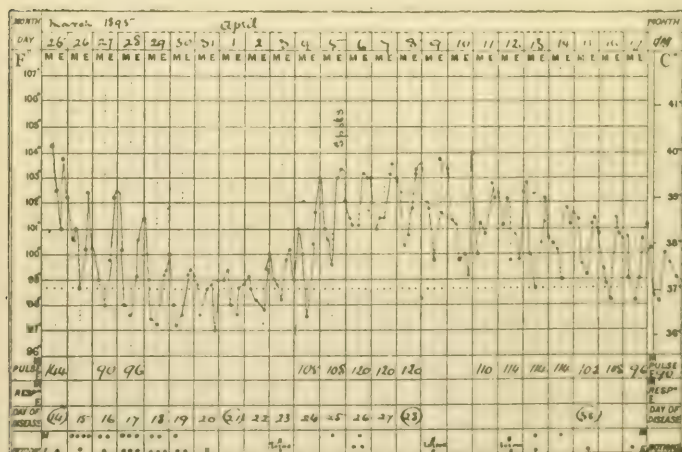 MONTH March 1895 April MONTH
DAY 25 26 27 28 29 30 31 1 2 3 4 5 6 7 8 9 10 11 12 13 14 17 DAY
F° M E M E M E M E M E M E M E M E M E M E M E M E M E M E M E M E M E M E M E M E M E M E M E M E C°
107°
106°
105° 41°
Spots
104° 40°
103°
102° 39°
101°
100° 38°
99°
98° 37°
97° 36°
96°
PULSE 144 90 96 108 108 120 120 120 110 114 114 114 102 108 96 PULSE
RESPN RESPN
DAY OF DISEASE (14) 15 16 17 18 19 20 (21) 22 23 24 25 26 27 (28) DAY OF DISEASE
MOTIONS